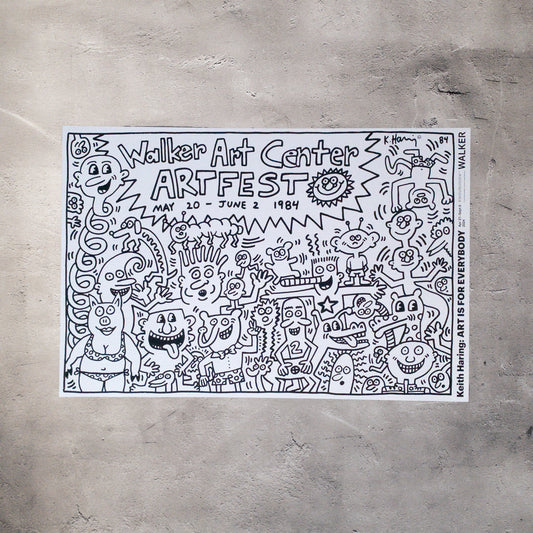 Walker Art Center
ARTFEST
MAY 20 - JUNE 2 1984
K. Haring 84
2
Keith Haring: ART IS FOR EVERYBODY
WALKER